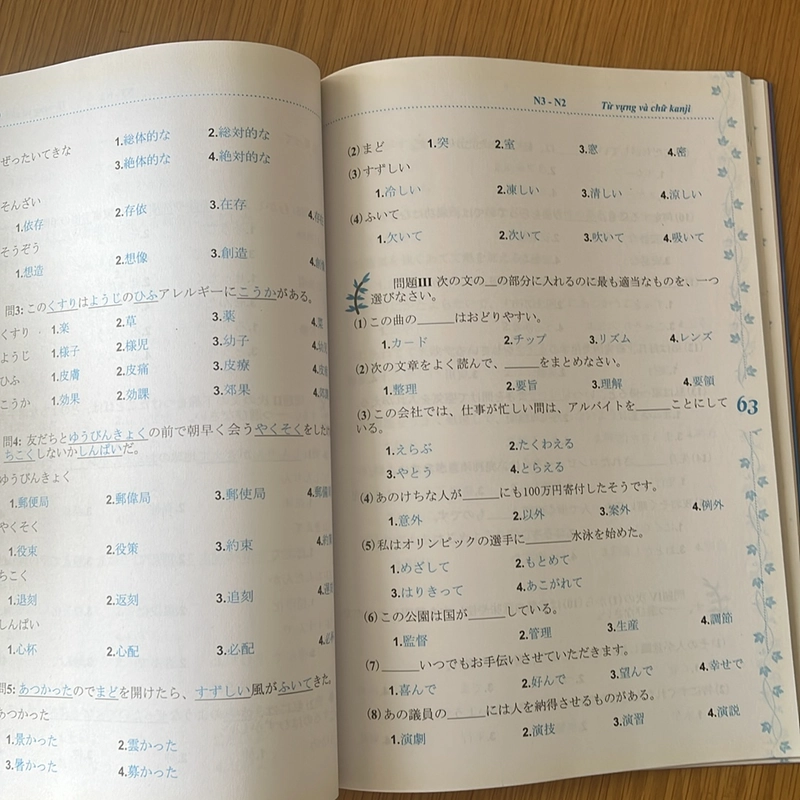 ぜったいてきな
1.総体的な 2.総対的な
3.絶体的な 4.絶対的な
そんざい
1.依存 2.存依 3.在存 4.
そうぞう
1.想造 2.想像 3.創造 4.
問3: このくすりはようじのひふアレルギーにこうかがある。
くすり 1.楽 2.草 3.薬 4.
ようじ 1.様子 2.様児 3.幼子 4.
ひふ 1.皮膚 2.皮痛 3.皮療 4.
こうか 1.効果 2.効課 3.郊果 4.
問4: 友だちとゆうびんきょくの前で朝早く会うやくそくをした
ちこくしないかしんぱいだ。
ゆうびんきょく
1.郵便局 2.郵偉局 3.郵使局 4.郵
やくそく
1.役束 2.役策 3.約束 4.
ちこく
1.退刻 2.返刻 3.追刻 4.
しんぱい
1.心杯 2.心配 3.必配 4.
問5: あつかったのでまどを開けたら、すずしい風がふいてきた。
あつかった
1.景かった 2.雲かった
3.暑かった 4.募かった
N3 - N2 Từ vựng và chữ kanji
(2) まど 1.突 2.室 3.窓 4.密
(3) すずしい
1.冷しい 2.凍しい 3.清しい 4.涼しい
(4) ふいて
1.欠いて 2.次いて 3.吹いて 4.吸いて
問題III 次の文の＿の部分に入れるのに最も適当なものを、一つ
選びなさい。
(1) この曲の______はおどりやすい。
1.カード 2.チップ 3.リズム 4.レンズ
(2) 次の文章をよく読んで、______をまとめなさい。
1.整理 2.要旨 3.理解 4.要領
(3) この会社では、仕事が忙しい間は、アルバイトを______ことにして
いる。
1.えらぶ 2.たくわえる
3.やとう 4.とらえる
63
(4) あのけちな人が______にも100万円寄付したそうです。
1.意外 2.以外 3.案外 4.例外
(5) 私はオリンピックの選手に________水泳を始めた。
1.めざして 2.もとめて
3.はりきって 4.あこがれて
(6) この公園は国が______している。
1.監督 2.管理 3.生産 4.調節
(7) ______いつでもお手伝いさせていただきます。
1.喜んで 2.好んで 3.望んで 4.幸せで
(8) あの議員の______には人を納得させるものがある。
1.演劇 2.演技 3.演習 4.演説